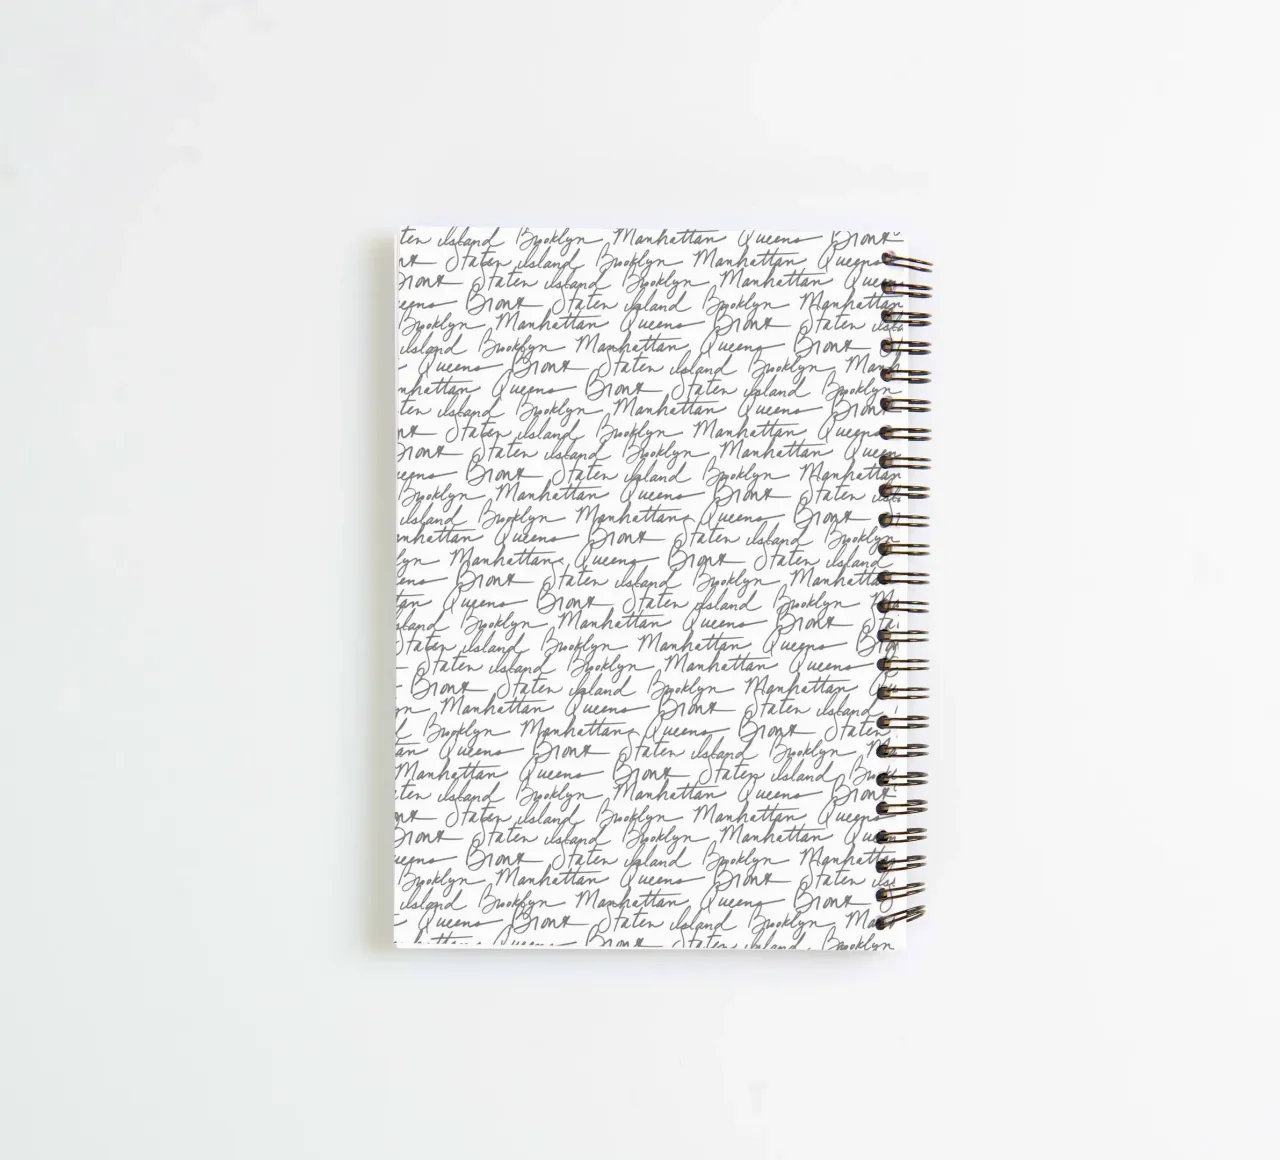 ten island Brooklyn Manhattan Queens Bronx
nx Staten island Brooklyn Manhattan Queens
Bronx Staten island Brooklyn Manhattan Queens
eens Bronx Staten island Brooklyn Manhattan
Brooklyn Manhattan Queens Bronx Staten isla
island Brooklyn Manhattan Queens Bronx
Queens Bronx Staten island Brooklyn Manh
nhattan Queens Bronx Staten island Brooklyn
ten island Brooklyn Manhattan Queens Bronx
nx Staten island Brooklyn Manhattan Queens
Bronx Staten island Brooklyn Manhattan Queen
eens Bronx Staten island Brooklyn Manhattan
Brooklyn Manhattan Queens Bronx Staten isl
island Brooklyn Manhattan Queens Bronx
nhattan Queens Bronx Staten island Brooklyn
lyn Manhattan Queens Bronx Staten island
eens Bronx Staten island Brooklyn Manhatta
tan Queens Bronx Staten island Brooklyn Ma
sland Brooklyn Manhattan Queens Bronx Stat
Staten island Brooklyn Manhattan Queens Bro
Staten island Brooklyn Manhattan Queens
Bronx Staten island Brooklyn Manhattan Qu
n Manhattan Queens Bronx Staten island
d Brooklyn Manhattan Queens Bronx Staten
an Queens Bronx Staten island Brooklyn Ma
Manhattan Queens Bronx Staten island Brook
ten island Brooklyn Manhattan Queens Bronx
nx Staten island Brooklyn Manhattan Queens
Bronx Staten island Brooklyn Manhattan Quee
ueens Bronx Staten island Brooklyn Manhatta
Brooklyn Manhattan Queens Bronx Staten isl
island Brooklyn Manhattan Queens Bronx S
Queens Bronx Staten island Brooklyn Ma
nhattan Queens Bronx Staten island Brooklyn